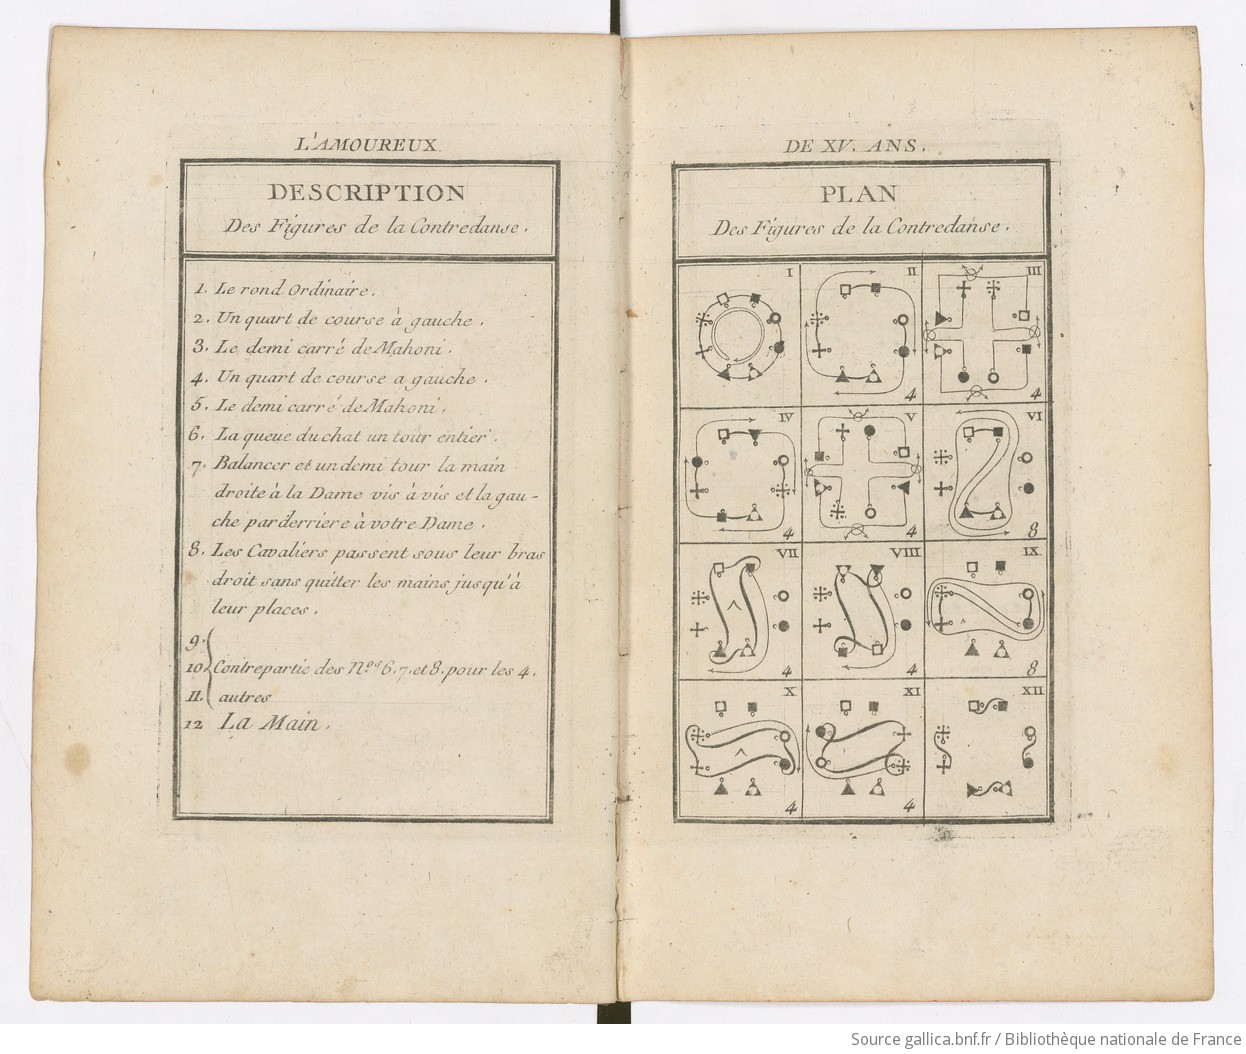 L'AMOUREUX
DESCRIPTION
Des Figures de la Contredanse.
1. Le rond Ordinaire.
2. Un quart de course à gauche.
3. Le demi carré de Mahoni.
4. Un quart de course a gauche.
5. Le demi carré de Mahoni.
6. La queue du chat un tour entier.
7. Balancer et un demi tour la main
droite à la Dame vis à vis et la gau-
che par derriere à votre Dame.
8. Les Cavaliers passent sous leur bras
droit sans quitter les mains jusqu'à
leur places.
9.
10. Contrepartie des N.os 6. 7. et 8. pour les 4.
11. autres
12 La Main.
DE XV. ANS.
PLAN
Des Figures de la Contredanse.
I II III
4 4
IV V VI
4 4 8
VII VIII IX
4 4 8
X XI XII
4 4
Source gallica.bnf.fr / Bibliothèque nationale de France